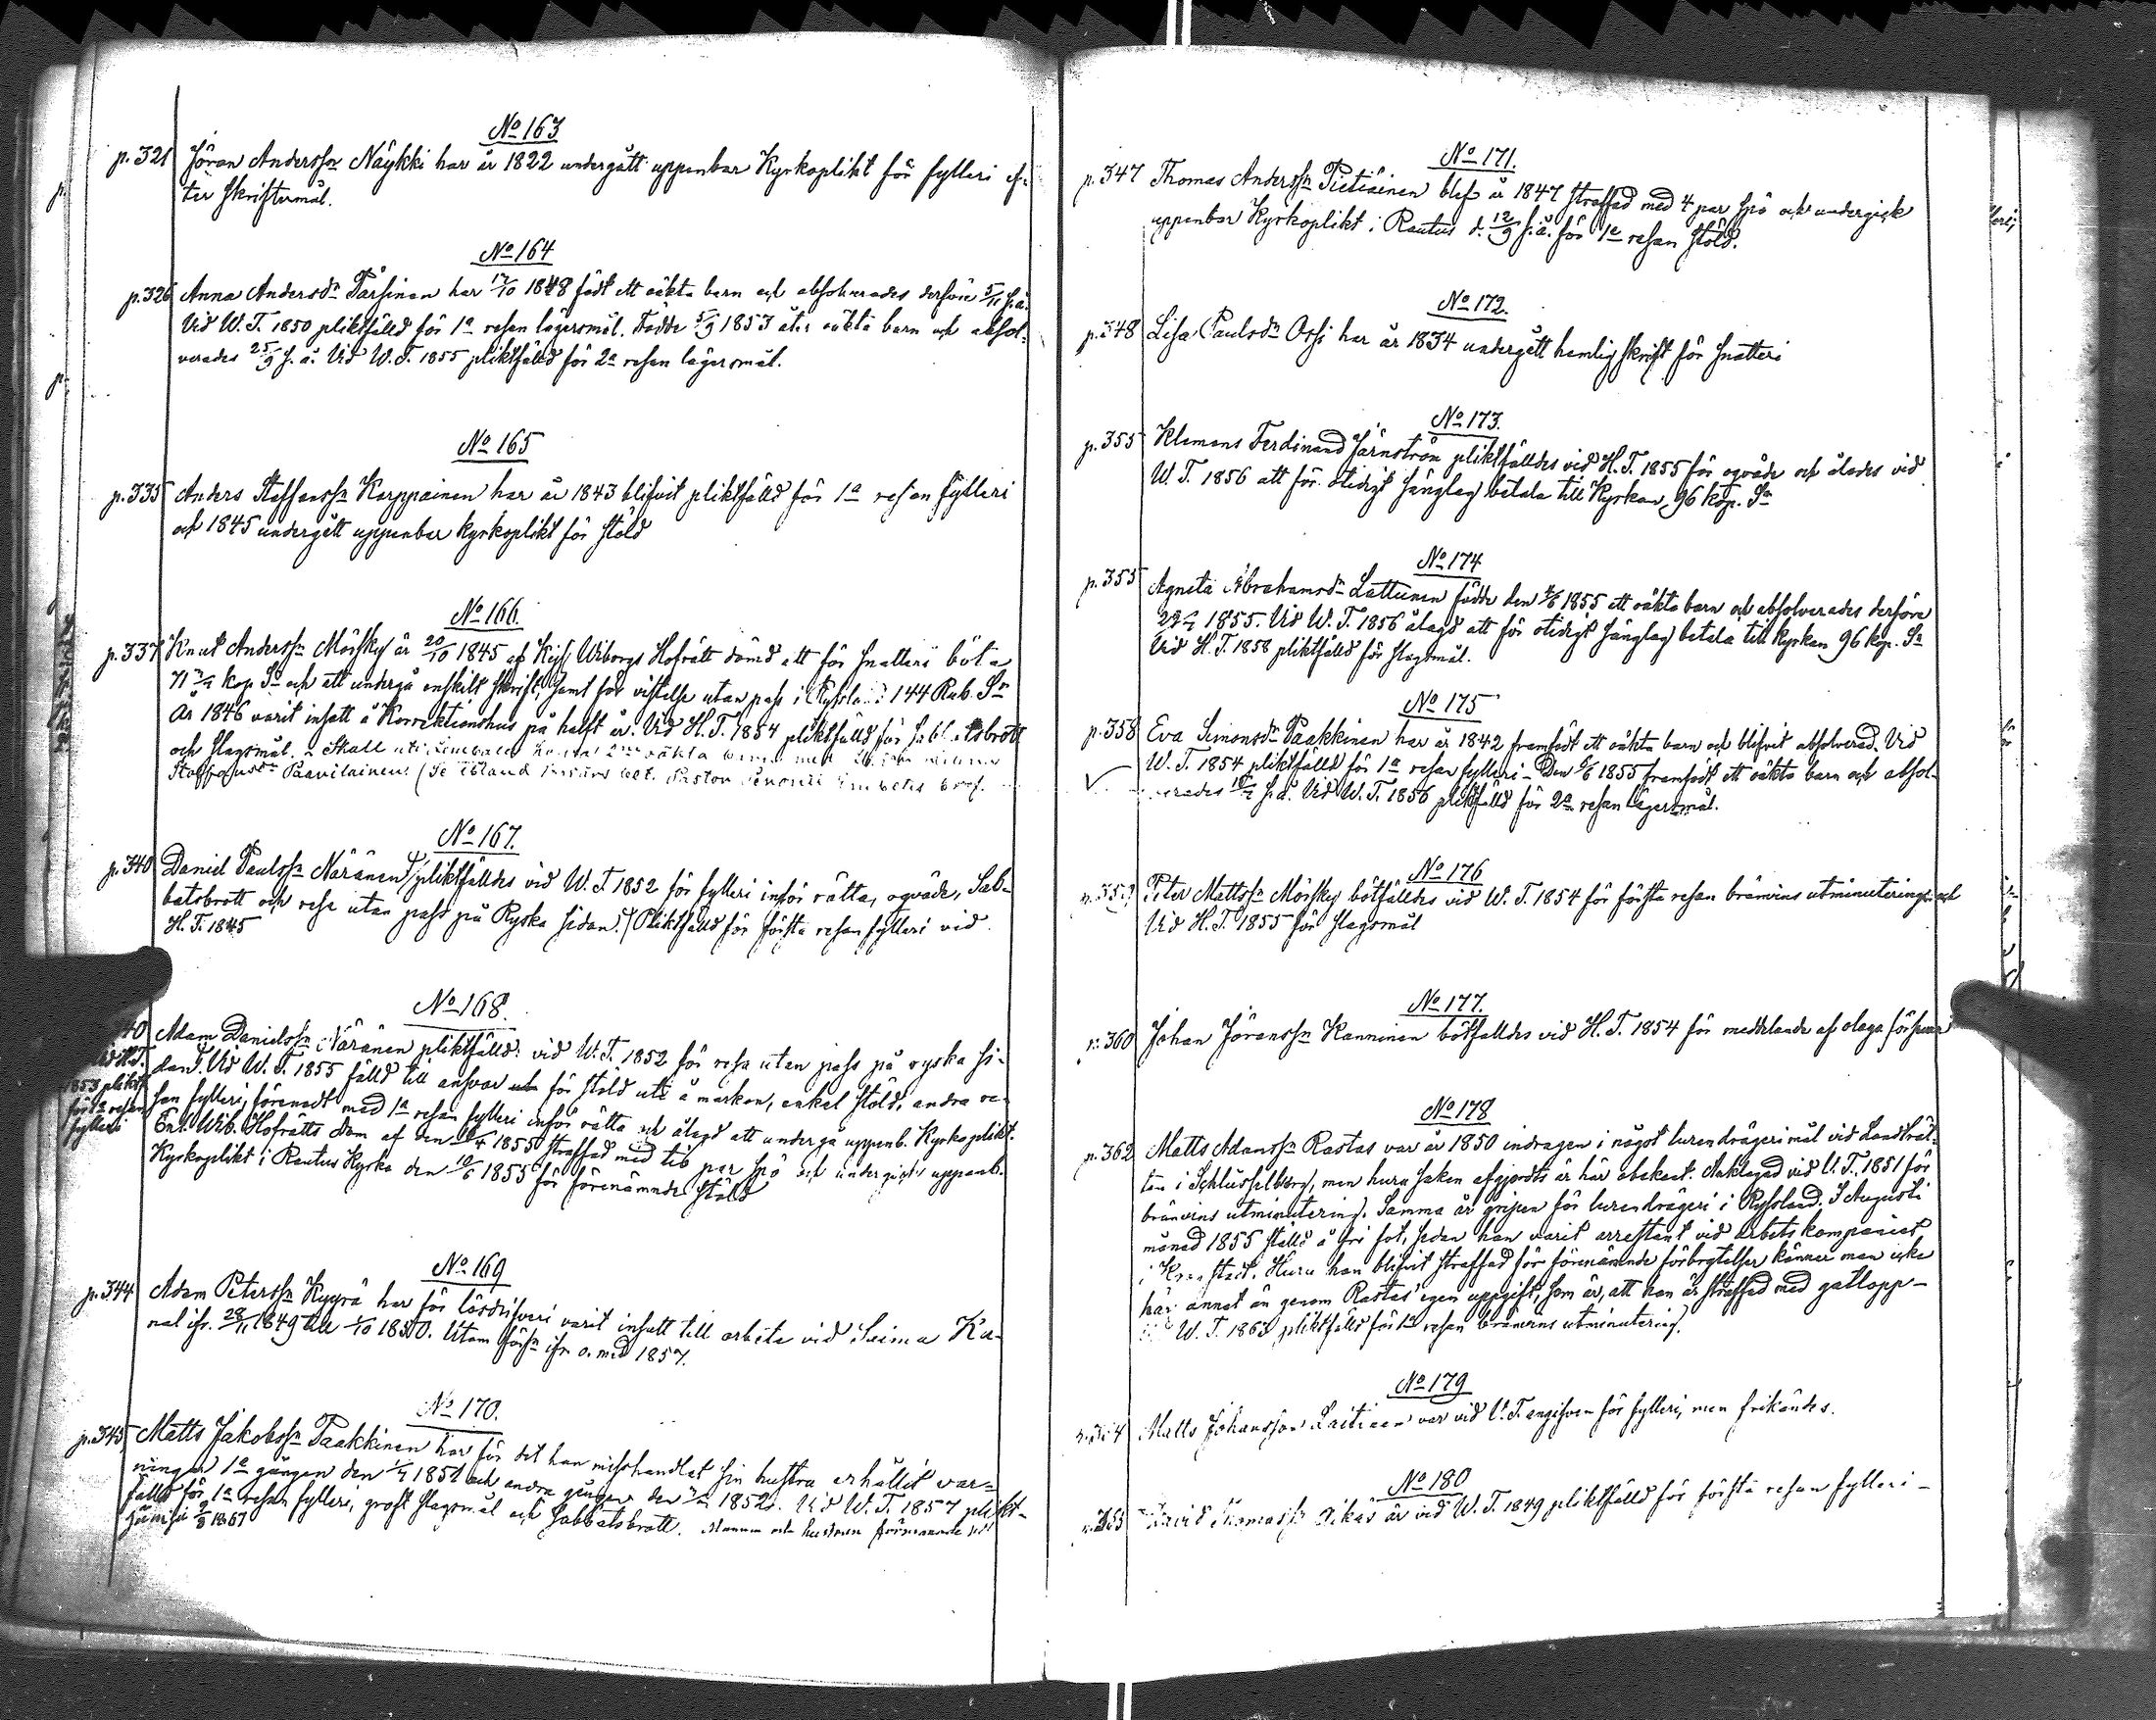 No 163
p. 321 Jöran Anderssn Näykki har år 1822 undergått uppenbar Kyrkoplikt för fylleri ef-
ter skriftermål.
No 164
p. 326 Anna Andersdr Parsinen har 17/10 1848 födt ett oäkta barn och absolverades derföre 5/11 s.å.
Vid W. T. 1850 pliktfälld för 1a resan lägersmål. Födde 5/9 1853 åter oäkta barn och absol-
verades 25/9 s. å. Vid W. T. 1855 pliktfälld för 2a resan lägersmål.
No 165
p. 335 Anders Staffanssn Karppainen har år 1843 blifvit pliktfälld för 1a resan fylleri
och 1845 undergått uppenbar kyrkoplikt för stöld
No 166.
p. 337 Knut Anderssn Möisky är 20/10 1845 af Kejs. Wiborgs Hofrätt dömd att för snatteri böta
71 kop Sr och att undergå enskilt skrift, samt för vistelse utan pass i Ryssland 144 Rub. Sr
År 1846 varit insatt å Korrektionshus på halft år. Vid H. T. 1854 pliktfälld för sabbatsbrott
och slagsmål. Skall uti
Staffansdr Paavilainen
No 167.
p. 340 Daniel Paulssn Näränen pliktfälldes vid W. T. 1852 för fylleri inför rätta, oqväde, Sab-
batsbrott och resa utan pass på Ryska sidan. Pliktfälld för första resan fylleri vid
H. T. 1845
No 168.
40 Adam Danielssn Näränen pliktfälld: vid W. T. 1852 för resa utan pass på ryska si-
vid H. T. dan. Vid W. T. 1855 fälld till ansvar för stöld ute å marken, enkel stöld, andra re-
1853 pliktf. san fylleri, förenadt med 1a resan fylleri inför rätta och ålagd att undergå uppenb. Kyrkoplikt.
för 1a resan Enl. Wib. Hofrätts dom af den 1855 straffad med tio par spö och undergick uppenb.
fylleri Kyrkoplikt i Rautus Kyrka den 10/6 1855 för förenämnde stöld
No 169
p. 344 Adam Peterssn Kyyrä har för lösdrifveri varit insatt till arbete vid Saima Ka-
nal ifr. 28/11 1849 till 1/10 1850. Utom förs. ifr o. med 1857.
No 170.
p. 345 Matts Jakobssn Paakkinen har för det han misshandlat sin hustru erhållit var-
ningar 1a gången den 1851 och andra gången den 1852. Vid W. T. 1857 plikt-
fälld för 1a resan fylleri, groft slagsmål och sabbatsbrott. Mannen och hustrun förmanade till
sämja 2/8 1867
No 171.
p. 347 Thomas Anderssn Pietiäinen blef år 1847 straffad med 4 par spö och undergick
uppenbar Kyrkoplikt i Rautus d. 12/9 s. å. för 1a resan stöld.
No 172.
p. 348 Lisa Paulsdr Orsi har år 1834 undergått hemlig skrift för snatteri
No 173.
p. 355 Klemens Ferdinand Järnström pliktfälldes vid H. T. 1855 för oqväde och ålades vid
W. T. 1856 att för otidigt sänglag betala till Kyrkan 96 kop. Sr
No 174
p. 355 Agneta Abrahamsdr Lattunen födde den 1855 ett oäkta barn och absolverades derföre
1855. Vid W. T. 1856 ålagd att för otidigt sänglag betala till kyrkan 96 kop. Sr
Vid H. T. 1858 pliktfälld för slagsmål.
No 175
p. 358 Eva Simonsdr Paakkinen har år 1842 framfödt ett oäkta barn och blifvit absolverad. Vid
W. T. 1854 pliktfälld för 1a resan fylleri. Den 1855 framfödt ett oäkta barn och absol-
verades s. å. Vid W. T. 1856 pliktfälld för 2a resan lägersmål.
No 176
p. 359 Peter Mattssn Möisky bötfälldes vid W. T. 1854 för första resan brännvins utminutering och
Vid H. T. 1855 för slagsmål
No 177.
p. 360 Johan Jöranssn Kanninen bötfälldes vid H. T. 1854 för meddelande af olaga försvar
No 178
p. 362 Matts Adamssn Rastas var år 1850 indragen i något lurendrägerimål vid Landträt-
ten i Schlüsselburg, men huru saken afgjordts är här obekant. Anklagad vid V. T. 1851 för
brännvins utminutering. Samma år gripen för lurendrägeri i Ryssland. I Augusti
månad 1855 ställd å fri fot, sedan han varit arrestant vid arbetskompaniet
i Kronstadt. Huru han blifvit straffad för förenämnde förbrytelser känner man icke
här annat än genom Rastas' egen uppgift, som är, att han är straffad med gatlopp -
W. T. 1863 pliktfälld för 1a resan brännvins utminutering.
No 179
Matts Johansson Laitinen var vid V. T. angifven för fylleri, men frikändes.
No 180
David Thomassn Äikäs är vid W. T. 1849 pliktfälld för första resan fylleri -